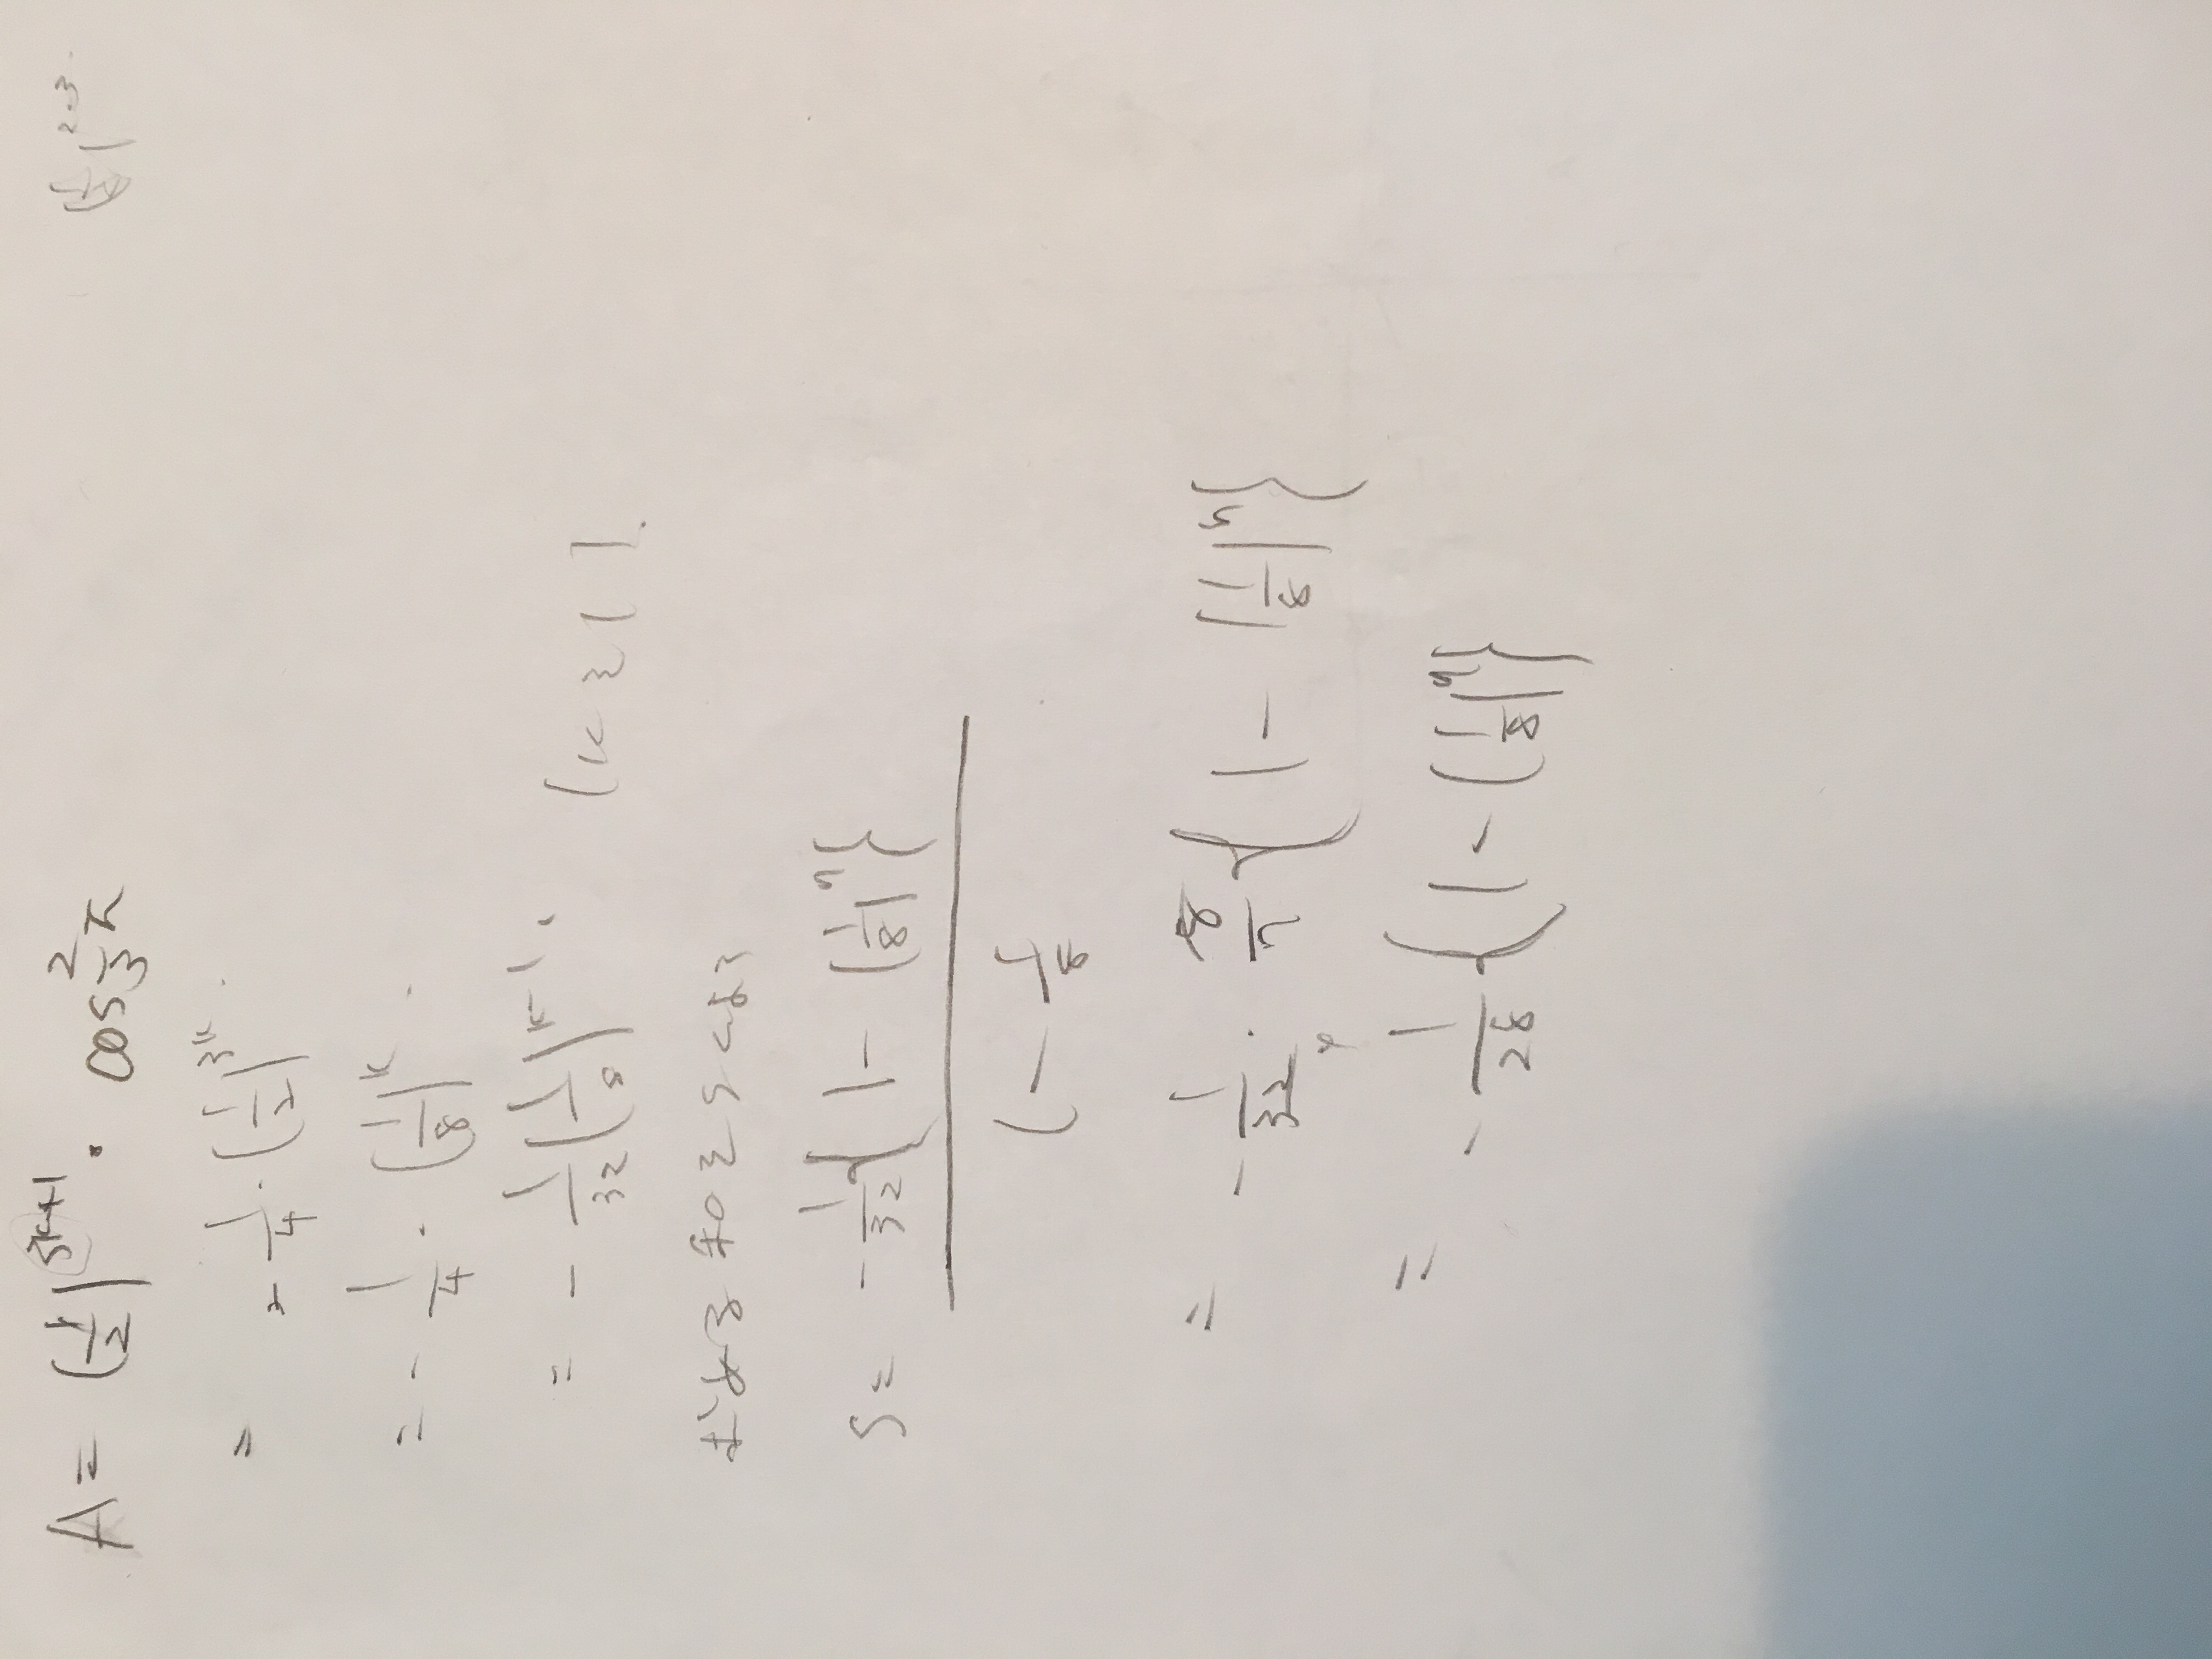 A = (1/2)^{3k+1} · cos 2/3 π
= -1/4 · (1/2)^{3k}.
= -1/4 · (1/8)^k.
= -1/32 (1/8)^{k-1}. (k≧1).
S = -1/32 {1 - (1/8)^n} / (1 - 1/8)
= -1/32 · 8/7 {1 - (1/8)^n}
= -1/28 {1 - (1/8)^n}